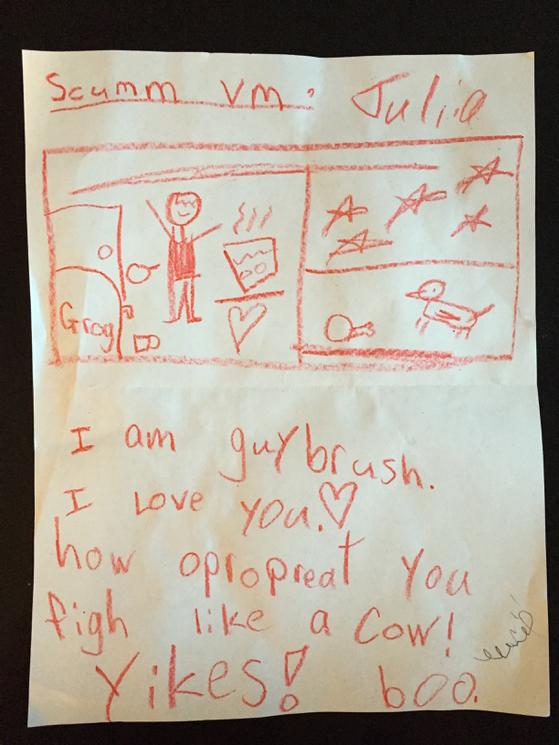 Scumm VM: Julia
Grog
I am guybrush.
I love you.♡
how opropreat you
figh like a cow!
Yikes! boo.